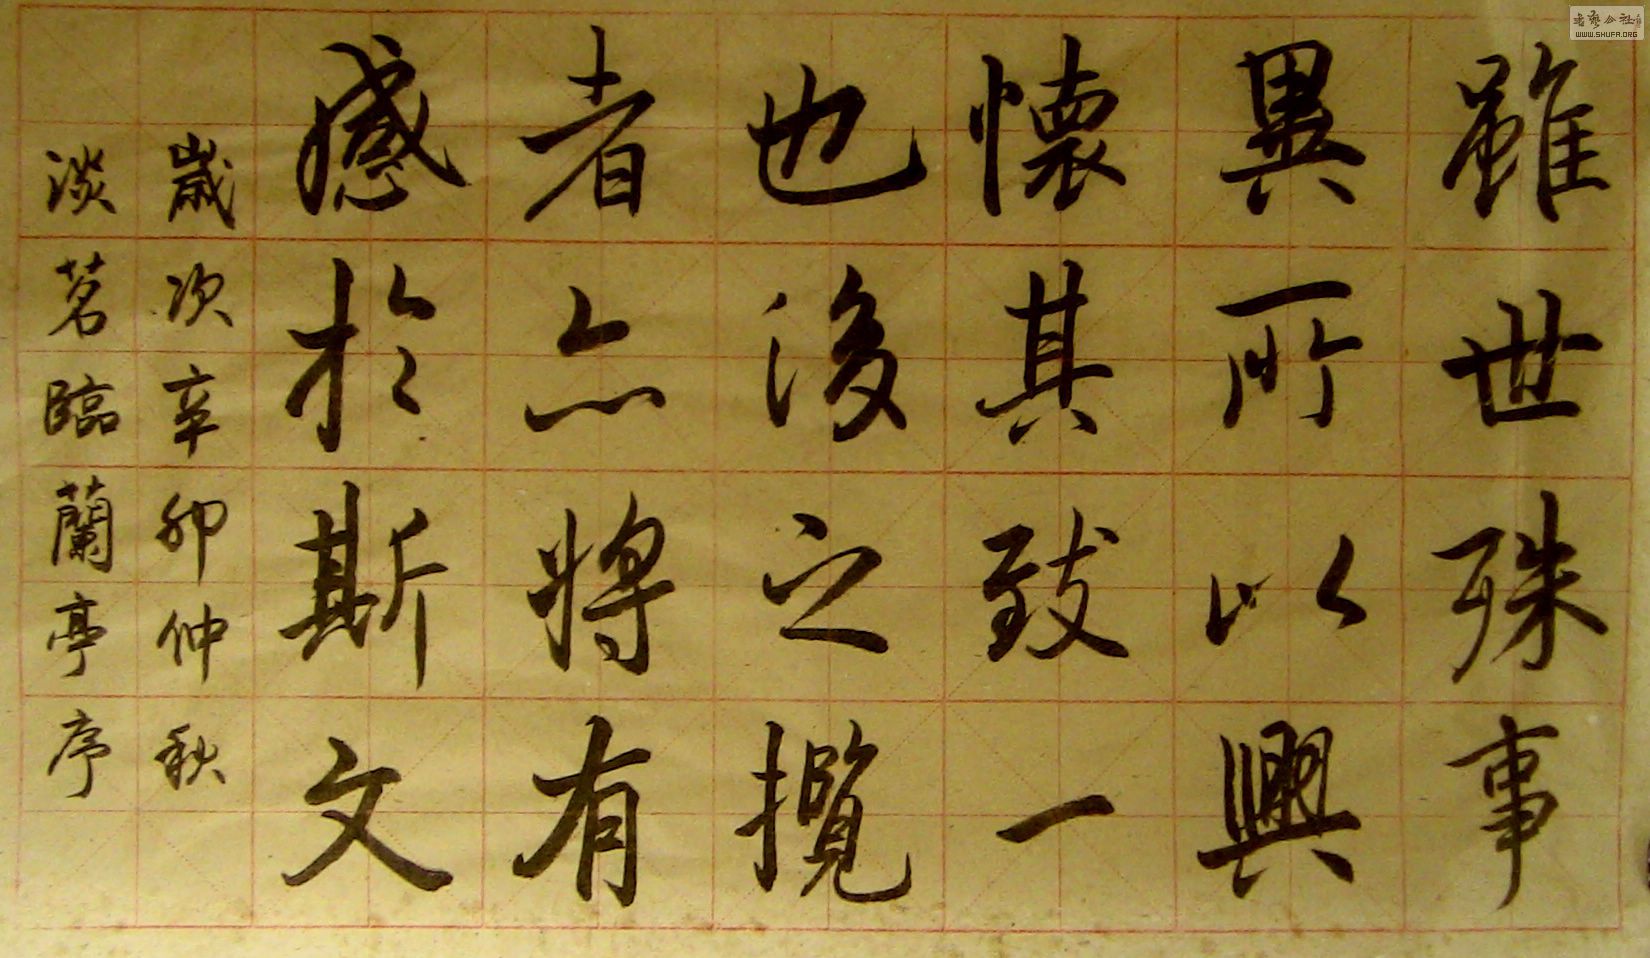 雖世殊事
異所以興
懷其致一
也後之攬
者亦將有
感於斯文
歲次辛卯仲秋
淡茗臨蘭亭序
WWW.SHUFA.ORG